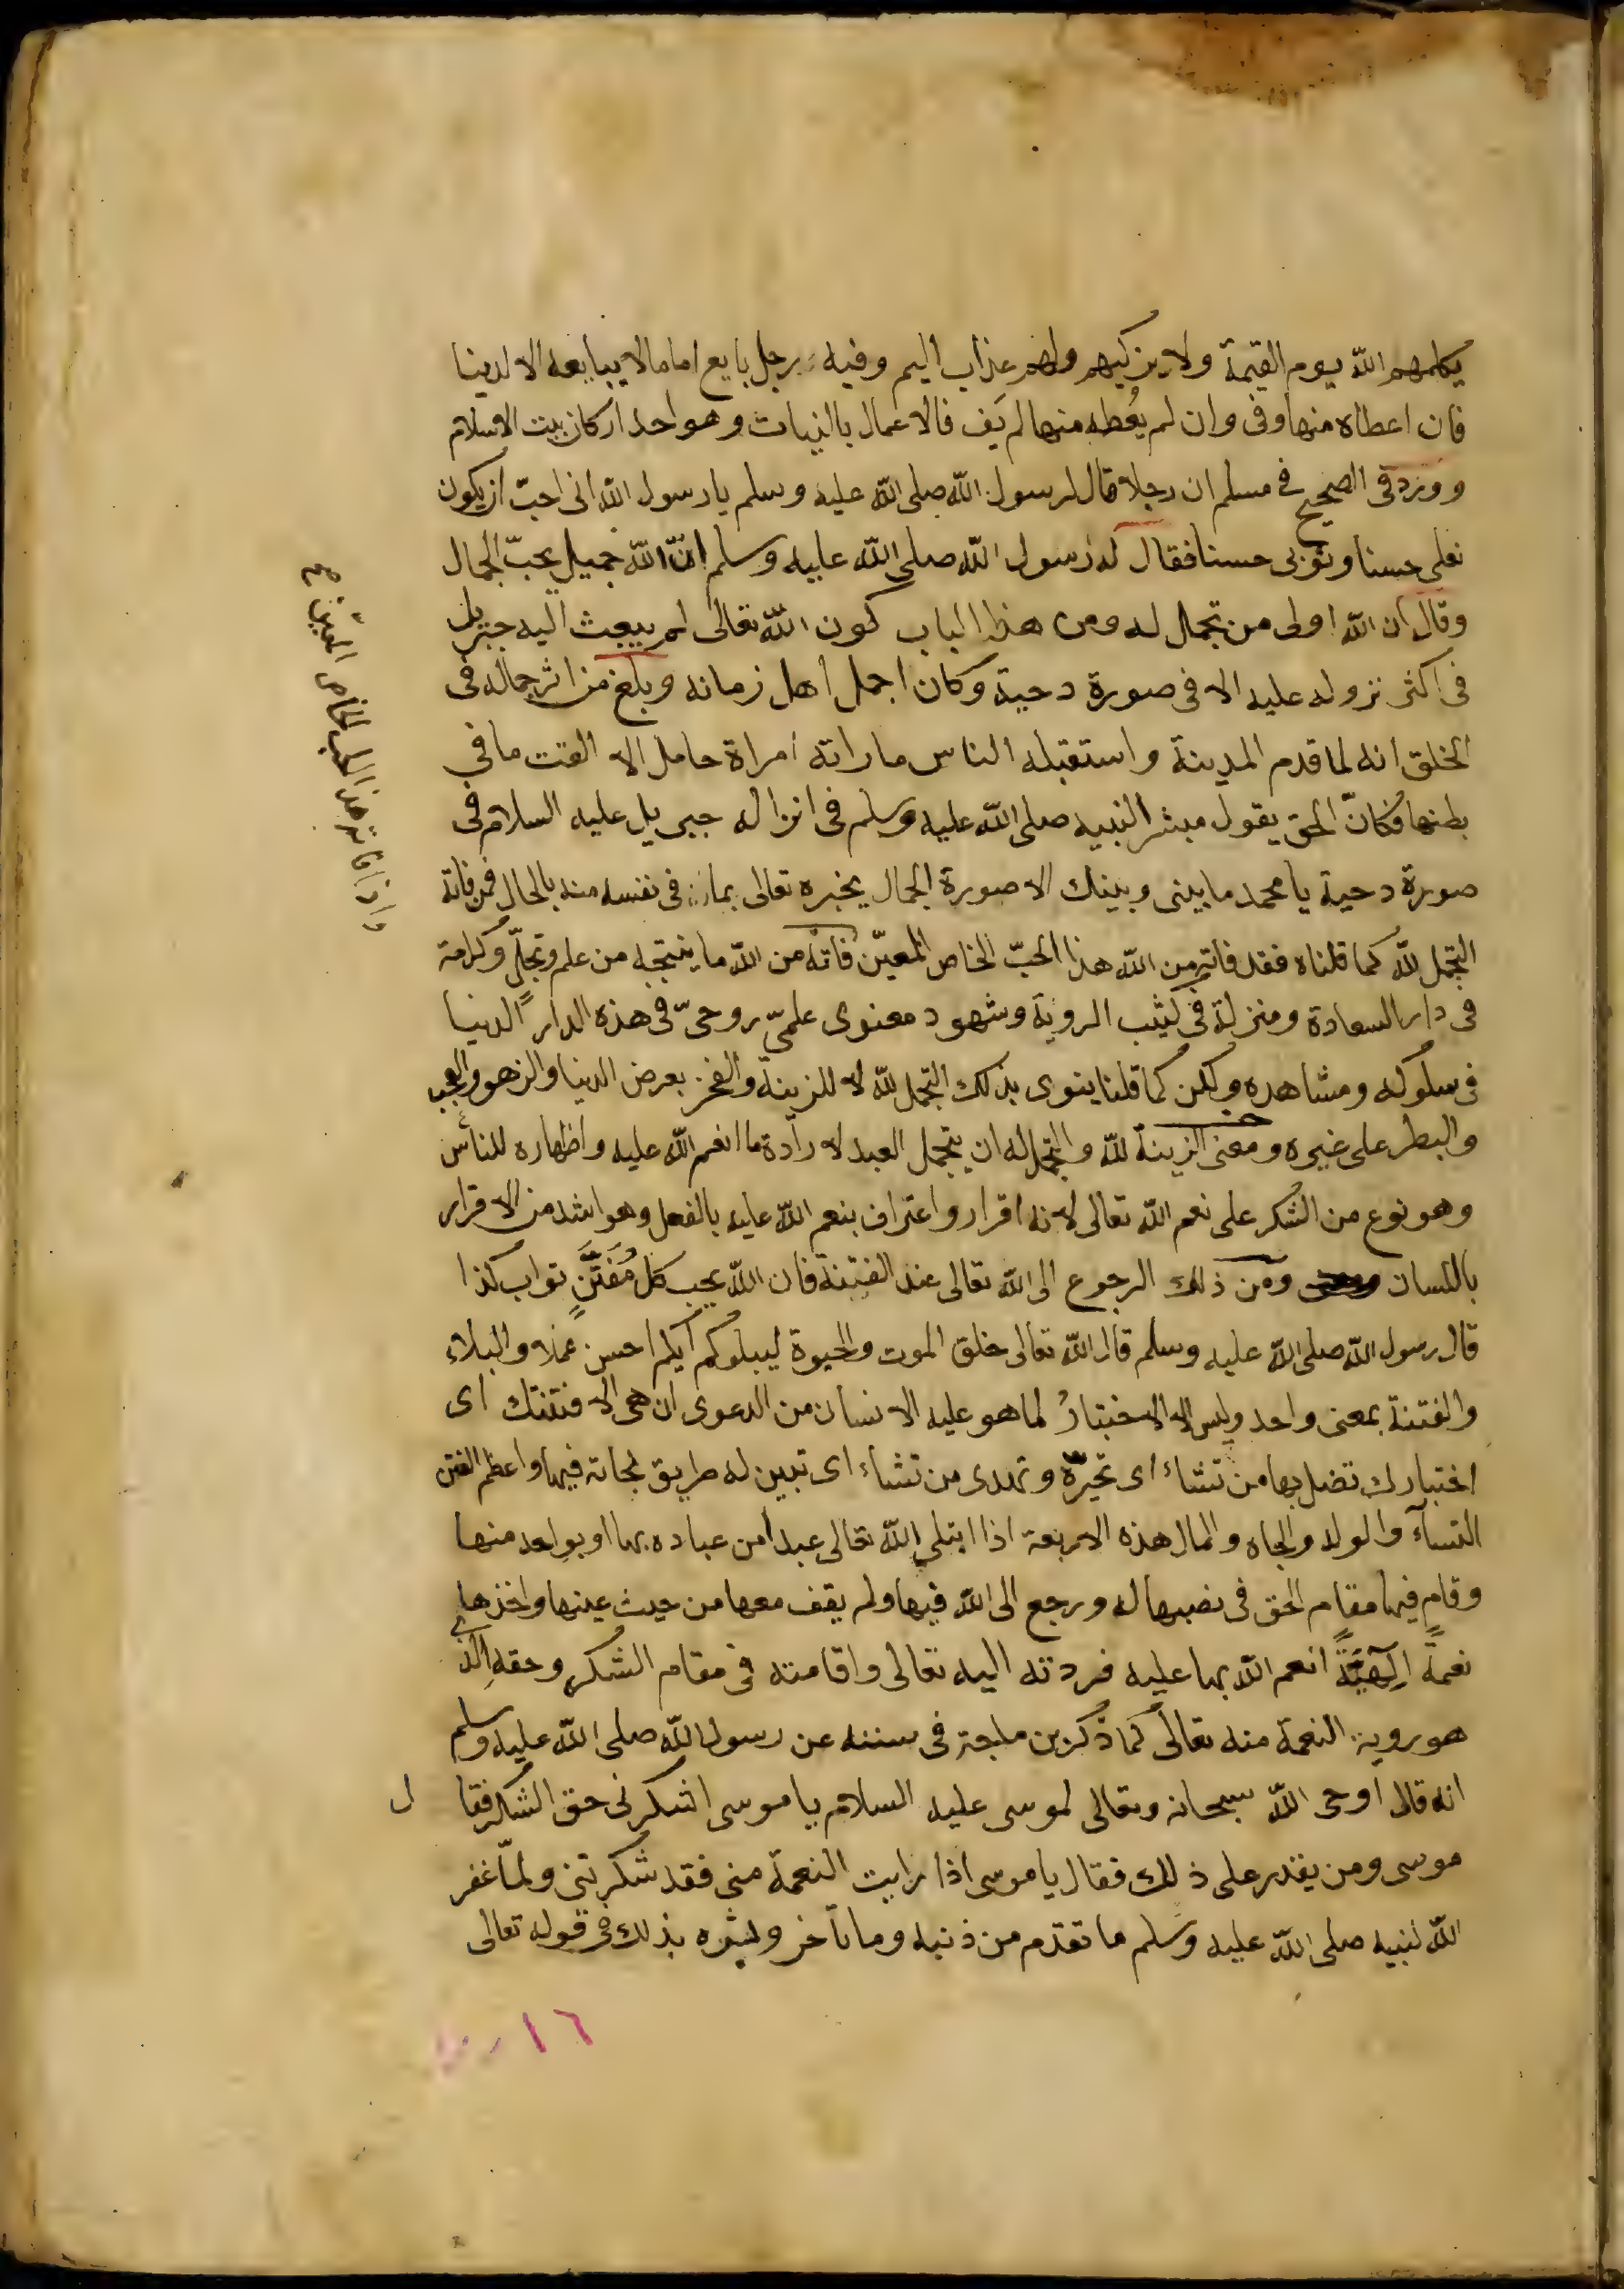 يكلمهم الله يوم القيمة ولا يزكيهم ولهم عذاب اليم وفيه رجل بايع اماما لا يبايعه الا لدينا
فان اعطاه منها وفى وان لم يُعطه منها لم يَف فالاعمال بالنيات وهو احد اركان بيت الاسلام
وورد فى الصحيح فى مسلم ان رجلا قال لرسول الله صلى الله عليه وسلم يا رسول الله انى احبّ ان يكون
نعلى حسنا وثوبى حسنا فقال له رسول الله صلى الله عليه وسلم انّ الله جميل يحبّ الجمال
وقال ان الله اولى من تجمل له ومن هذا الباب كون الله تعالى لم يبعث اليه جبريل
فى اكثر نزوله عليه الا فى صورة دحية وكان اجمل اهل زمانه وبلغ من اثر جماله فى
الخلق انه لما قدم المدينة واستقبله الناس ما راته امراة حامل الا القت ما في
بطنها فكانّ الحق يقول مبشر النبيه صلى الله عليه وسلم فى انزاله جبريل عليه السلام فى
صورة دحية يا محمد ما بينى وبينك الا صورة الجمال يخبره تعالى بما فى نفسه منه بالحال فمن فاته
التجمل لله كما قلناه فقد فاته من الله هذا الحبّ الخاص المعيّن فاته من الله ما ينتجه من علم وتجلّ وكرامة
فى دار السعادة ومنزلة فى كثيب الروية وشهود معنوى علمىّ روحىّ فى هذه الدار الدنيا
فى سلوكه ومشاهده ولكن كما قلنا ينوى بذلك التجمل لله لا للزينة والفخر بعرض الدنيا والزهو والعجب
والبطر على غيره ومعنى الزينة لله والتجمل له ان يتجمل العبد لا رادة ما انعم الله عليه واظهاره للناس
وهو نوع من الشكر على نعم الله تعالى لانه اقرار واعتراف بنعم الله عليه بالفعل وهو اشد من الاقرار
باللسان ومن ذلك الرجوع الى الله تعالى عند الفتنة فان الله يحب كل مُفَتَّنٍ تواب كذا
قال رسول الله صلى الله عليه وسلم قال الله تعالى خلق الموت والحيوة ليبلوكم ايكم احسن عملا والبلاء
والفتنة بمعنى واحد وليس الا الاختبارُ لما هو عليه الانسان من الدعوى ان هى الا فتنتك اى
اختبارك تضل بها من تشاء اى تحيّره وتهدى من تشاء اى تبين له طريق نجاته فيها واعظم الفتن
النسآء والولد والجاه والمال هذه الاربعة اذا ابتلى الله تعالى عبدا من عباده بها او بواحد منها
وقام فيها مقام الحق فى نصبها له ورجع الى الله فيها ولم يقف معها من حيث عينها واخذها
نعمةً الٓهيَّةً انعم الله بها عليه فردته اليه تعالى واقامته فى مقام الشكر وحقه الذى
هو روية النعمة منه تعالى كما ذكر بن ماجة فى سننه عن رسول الله صلى الله عليه وسلم
انه قال اوحى الله سبحانه وتعالى لموسى عليه السلام يا موسى اشكرنى حق الشكر فقال
موسى ومن يقدر على ذلك فقال يا موسى اذا رايت النعمة منى فقد شكرتنى ولمّا غفر
الله لنبيه صلى الله عليه وسلم ما تقدم من ذنبه وما تأخر وبشره بذلك فى قوله تعالى
واذا فاته هذا الحب الخاص المعيّن صح
١٦